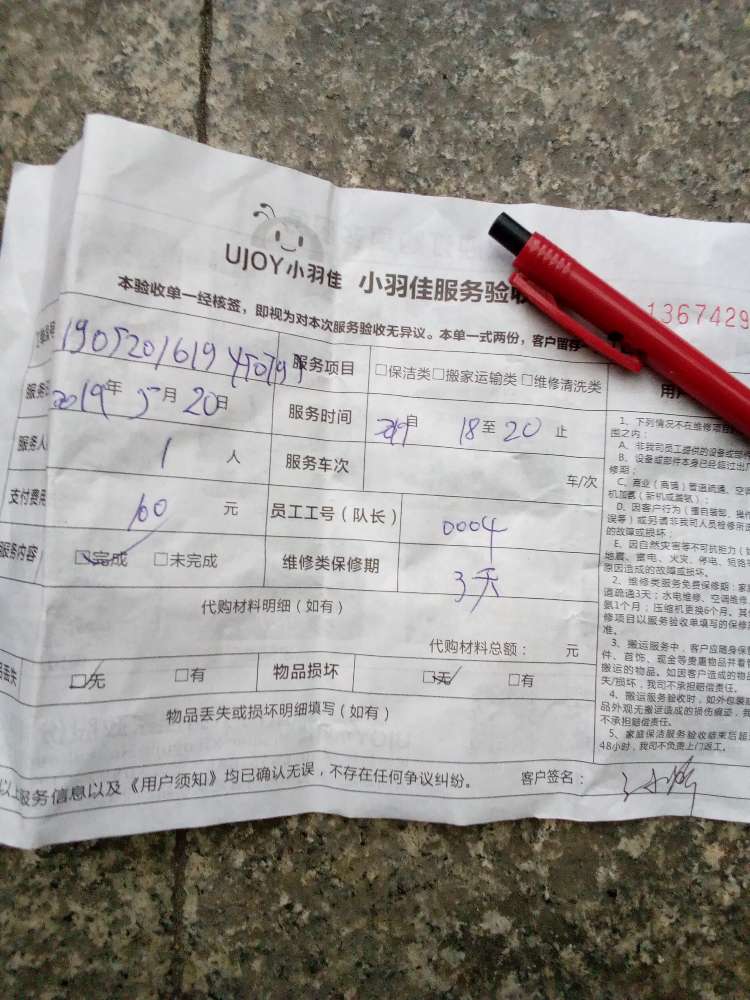 UJOY小羽佳 小羽佳服务验收
1367429
本验收单一经核签，即视为对本次服务验收无异议。本单一式两份，客户留存
服务项目 □保洁类□搬家运输类□维修清洗类
2019年 5月 20日 服务时间 自 18至 20 止
服务人 1 人 服务车次 车/次
支付费用 160 元 员工工号（队长） 0004
服务内容 ☑完成 □未完成 维修类保修期 3天
代购材料明细（如有）
代购材料总额： 元
丢失 ☑无 □有 物品损坏 ☑无 □有
物品丢失或损坏明细填写（如有）
以上服务信息以及《用户须知》均已确认无误，不存在任何争议纠纷。 客户签名：
用户
1、下列情况不在维修项目
围之内：
A、非我司员工提供的设备或部件
B、设备或部件本身已经超过出厂
修期；
C、商业（商铺）管道疏通、空调
机加氨（新机或盖氨）；
D、因客户行为（擅自装卸、操作
误等）或另请非我司人员检修所造
的故障或损坏；
E、因自然灾害等不可抗拒力（如
地震、雷电、火灾、停电、短路等
原因造成的故障或损坏。
2、维修类服务免费保修期：家庭
道疏通3天；水电维修、空调维修、
氨1个月；压缩机更换6个月。其他
修项目以服务验收单填写的保修期
准。
3、搬运服务中，客户应随身保管
件、首饰、现金等贵重物品并看管
搬运的物品。如因客户造成的物品
失/损坏，我司不承担赔偿责任。
4、搬运服务验收时，如外包装或
品外观无搬运造成的损伤痕迹，我
不承担赔偿责任。
5、家庭保洁服务验收结束后超过
48小时，我司不负责上门返工。